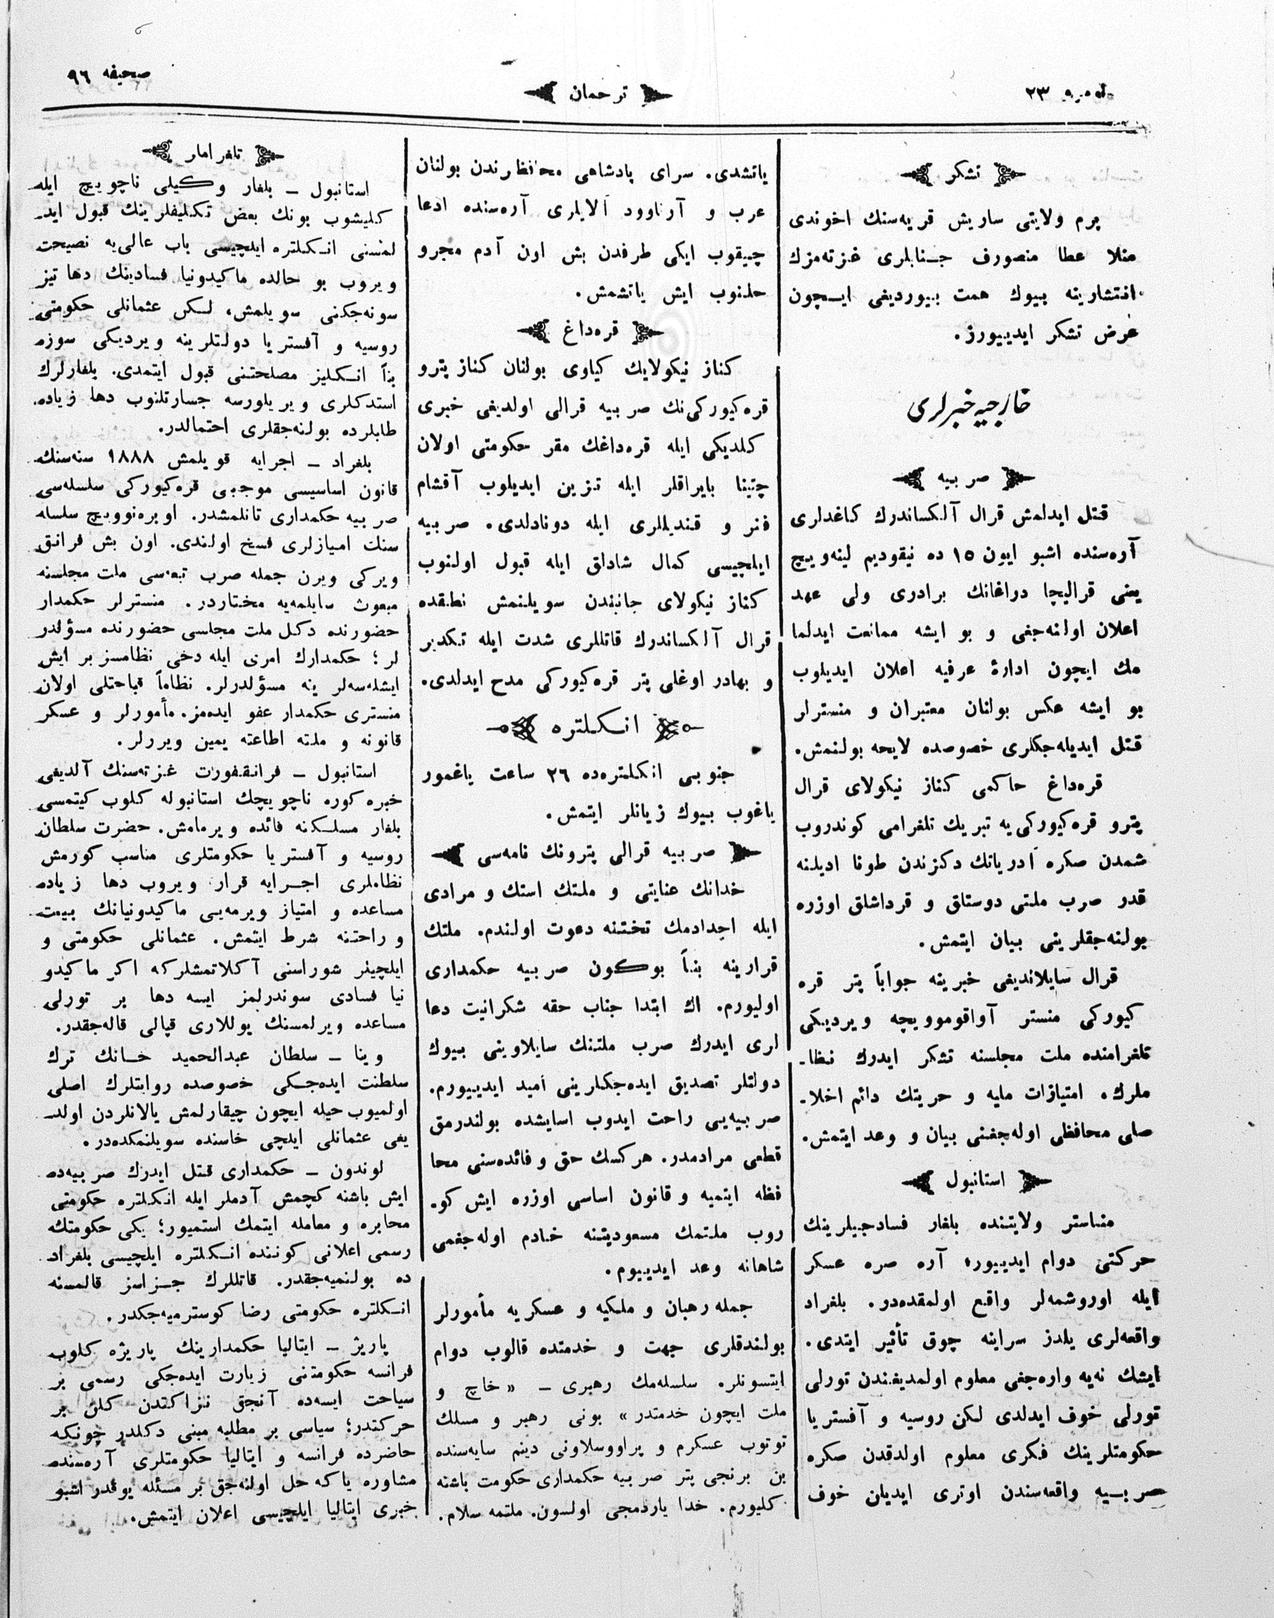 نومرو ٢٣
ترجمان
صحیفه ٩٦
تشکر
پرم ولایتی ساریش قریه‌سنك اخوندی
منلا عطا منصورف جنابلری غزته‌مزك
انتشارینه بیوك همت بیوردیغی ایچون
عرض تشکر ایدییورز.
خارجیه خبرلری
صربیه
قتل ایدلمش قرال آلکساندرك کاغدلری
آره‌سنده اشبو ایون ١٥ ده نیقودیم لینه‌ویچ
یعنی قرالیچا دراغانك برادری ولی عهد
اعلان اولنه‌جغی و بو ایشه ممانعت ایدلما
مك ایچون ادارۀ عرفیه اعلان ایدیلوب
بو ایشه عکس بولنان معتبران و منسترلر
قتل ایدیله‌جکلری خصوصده لایحه بولنمش.
قره‌داغ حاکمی کناز نیکولای قرال
پترو قره‌کیورکی‌یه تبریك تلغرامی کوندروب
شمدن صکره آدریاتك دکزندن طونا ادیلنه
قدر صرب ملتی دوستلق و قرداشلق اوزره
بولنه‌جقلرینی بیان ایتمش.
قرال سایلاندیغی خبرینه جواباً پتر قره
کیورکی منستر آواقوموویچه ویردیکی
تلغرامنده ملت مجلسنه تشکر ایدرك نظا-
ملرك، امتیازات ملیه و حریتك دائم اخلا-
صلی محافظی اوله‌جغنی بیان و وعد ایتمش.
استانبول
مناستر ولایتنده بلغار فسادجیلرینك
حرکتی دوام ایدییور، آره صره عسکر
ایله اوروشمه‌لر واقع اولمقده‌در. بلغراد
واقعه‌لری یلدز سراینه چوق تأثیر ایتدی.
ایشك نه‌یه واره‌جغی معلوم اولمدیغندن تورلی
تورلی خوف ایدلدی لکن روسیه و آفستریا
حکومتلرینك فکری معلوم اولدقدن صکره
صربیه واقعه‌سندن اوتری ایدیلن خوف
یاتشدی. سرای پادشاهی محافظلرندن بولنان
عرب و آرناوود آلایلری آره‌سنده ادعا
چیقوب ایکی طرفدن بش اون آدم مجرو
حلنوب ایش یاتشمش.
قره‌داغ
کناز نیکولایك کیاوی بولنان کناز پترو
قره‌کیورکی‌نك صربیه قرالی اولدیغی خبری
کلدیکی ایله قره‌داغك مقر حکومتی اولان
چتینا بایراقلر ایله تزین ایدیلوب آقشام
فنر و قندیللری ایله دونادلدی. صربیه
ایلچیسی کمال شادلق ایله قبول اولنوب
کناز نیکولای جانبندن سویلنمش نطقده
قرال آلکساندرك قاتللری شدت ایله تکدیر
و بهادر اوغلی پتر قره‌کیورکی مدح ایدلدی.
انکلتره
جنوبی انکلتره‌ده ٢٦ ساعت یاغمور
یاغوب بیوك زیانلر ایتمش.
صربیه قرالی پترونك نامه‌سی
خدانك عنایتی و ملتك استك و مرادی
ایله اجدادمك تختنه دعوت اولندم. ملتك
قرارینه بنأ بوکون صربیه حکمداری
اولیورم. اك ابتدا جناب حقه شکرانیت دعا
لری ایدرك صرب ملتنك سایلاوینی بیوك
دولتلر تصدیق ایده‌جکلرینی امید ایدییورم.
صربیه‌یی راحت ایدوب اسایشده بولندرمق
قطعی مرادمدر. هرکسك حق و فائده‌سنی محا
فظه ایتمیه و قانون اساسی اوزره ایش کو-
روب ملتمك مسعودیتنه خادم اوله‌جغمی
شاهانه وعد ایدییوم.
جمله رهبان و ملکیه و عسکریه مأمورلر
بولندقلری جهت و خدمتده قالوب دوام
ایتسونلر. سلسله‌مك رهبری – «خاچ و
ملت ایچون خدمتدر» بونی رهبر و مسلك
توتوب عسکرم و پراووسلاونی دینم سایه‌سنده
بن برنجی پتر صربیه حکمداری حکومت باشنه
کلیورم. خدا یاردمجی اولسون. ملتمه سلام.
تلغرامار
استانبول – بلغار وکیلی ناچویچ ایله
کلیشوب بونك بعض تکلیفلرینك قبول اید-
لمسنی انکلتره ایلچیسی باب عالی‌یه نصیحت
ویروب بو حالده ماکیدونیا فسادینك دها تیز
سونه‌جکنی سویلمش، لکن عثمانلی حکومتی
روسیه و آفستریا دولتلرینه ویردیکی سوزه
بنأ انکلیز مصلحتنی قبول ایتمدی. بلغارلرك
استدکلری ویریلورسه جسارتلنوب دها زیاده
طابلرده بولنه‌جقلری احتمالدر.
بلغراد – اجرایه قویلمش ١٨٨٨ سنه‌سنك
قانون اساسیسی موجبی قره‌کیورکی سلسله‌سی
صربیه حکمداری تانلمشدر. اوبره‌نوویچ سلسله
سنك امیازلری فسخ اولندی. اون بش فرانق
ویرکی ویرن جمله صرب تبعه‌سی ملت مجلسنه
مبعوث سایلمه‌یه مختاردر. منسترلر حکمدار
حضورنده دکل ملت مجلسی حضورنده مسؤلدر
لر؛ حکمدارك امری ایله دخی نظامسز بر ایش
ایشله‌سه‌لر ینه مسؤلدرلر. نظاماً قباحتلی اولان
منستری حکمدار عفو ایده‌مز. مأمورلر و عسکر
قانونه و ملته اطاعته یمین ویررلر.
استانبول – فرانقفورت غزته‌سنك آلدیغی
خبره کوره ناچویچك استانبوله کلوب کیتمسی
بلغار مسلکنه فائده ویرمامش. حضرت سلطان
روسیه و آفستریا حکومتلری مناسب کورمش
نظاملری اجرایه قرار ویروب دها زیاده
مساعده و امتیاز ویرمه‌یی ماکیدونیانك بیعت
و راحتنه شرط ایتمش. عثمانلی حکومتی و
ایلچیلر شوراسنی آکلاتمشلرکه اکر ماکیدو
نیا فسادی سوندرلمز ایسه دها بر تورلی
مساعده ویرلمسنك یوللاری قپالی قاله‌جقدر.
وینا – سلطان عبدالحمید خانك ترك
سلطنت ایده‌جکی خصوصده روایتلرك اصلی
اولمیوب حیله ایچون چیقارلمش یالانلردن اولد-
یغی عثمانلی ایلچی خاسنده سویلنمکده‌در.
لوندون – حکمداری قتل ایدرك صربیه‌ده
ایش باشنه کچمش آدملر ایله انکلتره حکومتی
مخابره و معامله ایتمك استمیور؛ یکی حکومتك
رسمی اعلانی کوننده انکلتره ایلچیسی بلغراد
ده بولنمیه‌جقدر. قاتللرك جزاسز قالمسنه
انکلتره حکومتی رضا کوسترمیه‌جکدر.
پاریژ – ایتالیا حکمدارینك پاریژه کلوب
فرانسه حکومتنی زیارت ایده‌جکی رسمی بر
سیاحت ایسه‌ده آنجق نزاکتدن کلن بر
حرکتدر؛ سیاسی بر مطلبه مبنی دکلدر چونکه
حاضرده فرانسه و ایتالیا حکومتلری آره‌سنده
مشاوره یاکه حل اولنه‌جق بر مسئله یوقدر اشبو
خبری ایتالیا ایلچیسی اعلان ایتمش.